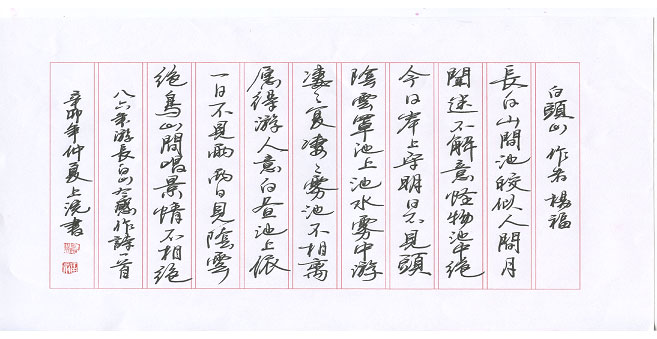 白頭山 作者 楊福
長白山間池皎似人間月
開迷不解意怪物池中绝
今日岸上字明日不見頭
陰雲罩池上池水雾中游
凄之夏凄之雾池不相离
愿得游人意白首池上依
一日不見兩兩日見陰雲
绝鳥山間唱景情不相绝
八六年游长白山有感作詩一首
辛卯年仲夏上浣書